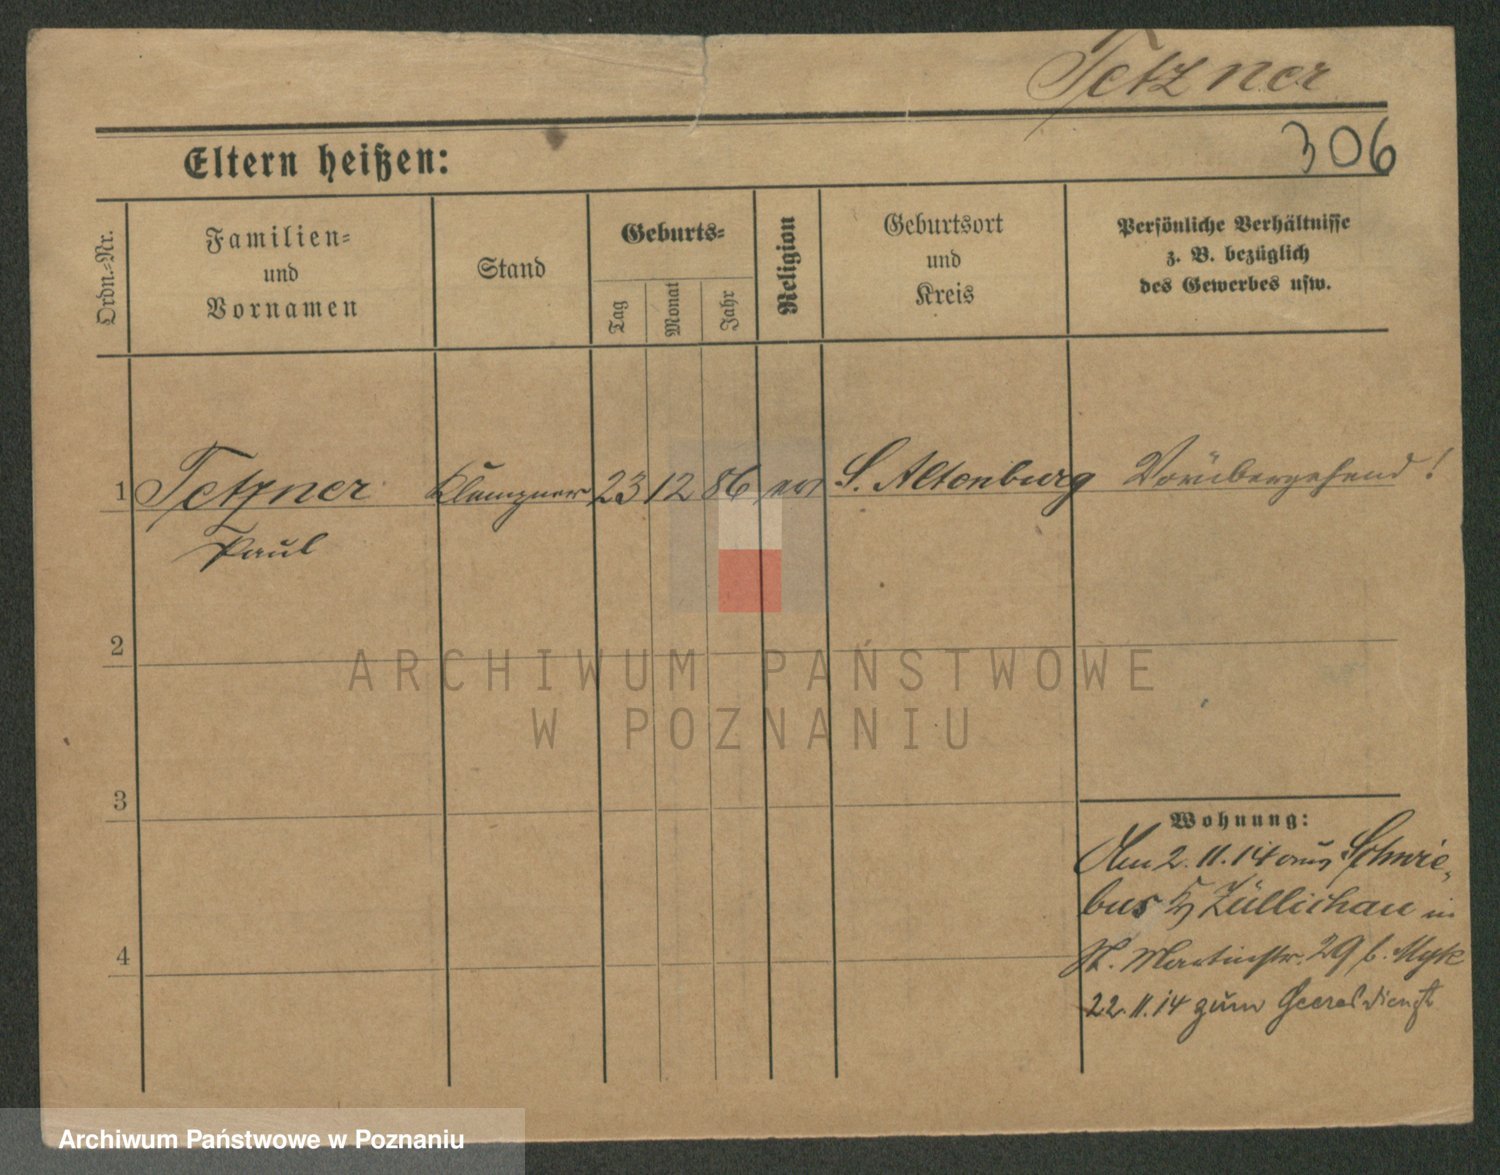 Tetzner
306
Eltern heißen:
Ordn.-Nr.
Familien-
und
Vornamen
Stand
Geburts-
Tag
Monat
Jahr
Religion
Geburtsort
und
Kreis
Persönliche Verhältnisse
z. B. bezüglich
des Gewerbes usw.
1 Tetzner Klempner 23 12 86 ev S. Altenburg Vorübergehend!
Paul
2
3
4
Wohnung:
Am 2.11.14 aus Schwie-
bus Kr Züllichau in
St. Martinstr. 29 b.
22.11.14 zum Heeresdienst
ARCHIWUM PAŃSTWOWE
W POZNANIU
Archiwum Państwowe w Poznaniu